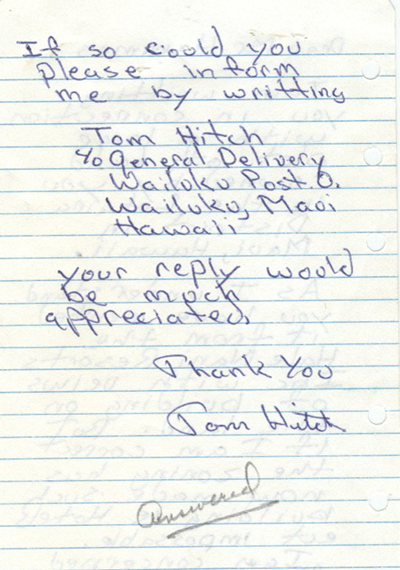 If so could you
please inform
me by writting
Tom Hitch
℅ General Delivery
Wailuku Post. O.
Wailuku, Maoi
Hawaii
your reply would
be much
appreciated,
Thank You
Tom Hitch
Answered